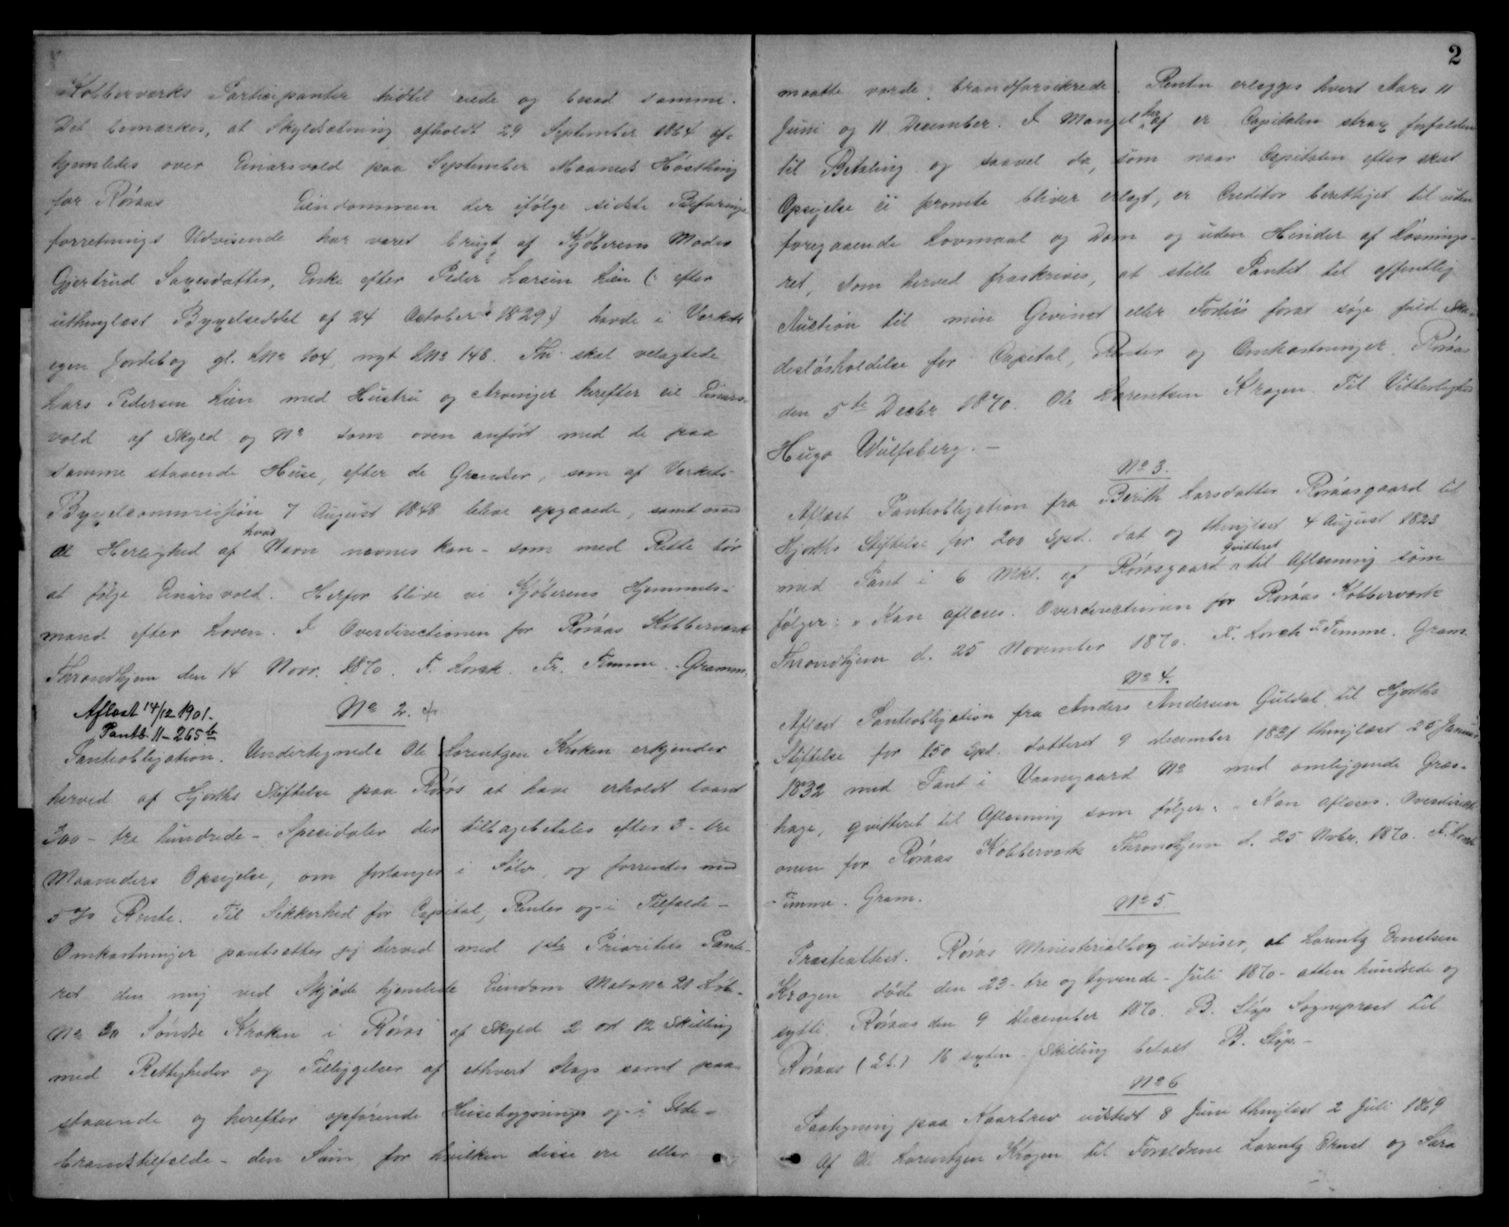 Kobberværks Participanter hidtil eiede og besad samme.
Det bemærkes, at Skyldsætning afholdt 29 September 1864 af-
hjemledes over Einarsvold paa September Maaneds Høstthing
for Røraas Eiendommen der ifølge sidste Befarings
forretnings Udvisende har været brugt af Kjøberens Moder
Gjertrud Saxesdatter, Enke efter Peder Larsen Lien ( efter
uthinglæst Bygselseddel af 24 October 1829) havde i Værkets
egen Jordebog gl. LNo 104, nyt LNo 148. Thi skal velagtede
Lars Pedersen Lien med Hustru og Arvinger herefter eie Einars-
vold af Skyld og No som oven anført med de paa
samme staaende Huse, efter de Grændser, som af Værkets
Bygselcommission 7 August 1848 bleve opgaaede, samt med
al Herlighed af hvad Navn nævnes kan - som med Rette bør
at følge Einarsvold. Herfor blive vi Kjøberens Hjemmels-
mænd efter Loven. I Overdirectionen for Røraas Kobberværk
Throndhjem den 14 Novr. 1870. F. Lorck. Fr. Finne. Gramm.
Aflæst 14/12 1901.
Pantb. 11-265b
No 2.
Pantiobligation. Undertegnede Ole Lorentzen Kroken erkjender
herved af Hjorths Stiftelse paa Røros at have erholdt laant
300 - tre hundrede - Speciedaler der tilbagebetales efter 3 - tre
Maaneders Opsigelse, om forlanges i Sølv, og forrentes med
5 % Rente. Til Sikkerhed for Capital, Renter og i Tilfælde -
Omkostninger pantsættes jeg herved med 1ste Prioritets Pante-
ret den mig ved Skjøde hjemlede Eiendom Matr No 21 Løb-
No 30 Søndre Kroken i Røros af Skyld 2 ort 12 Skilling
med Rettigheder og Tilliggelser af ethvert Slags samt paa-
staaende og herefter opførende Husebygninger og i Ilde-
brandstilfælde - den Sum for hvilken disse ere eller
2
maatte vorde brandforsikrede. Renten erlægges hvert Aars 11
Juni og 11 December. I Mangel heraf er Capitalen strax forfalden
til Betaling og saavel da, som naar Capitalen efter skeet
Opsigelse ei promte bliver erlagt, er Creditor berettiget til uden
foregaaende Lovmaal og Dom og uden Hinder af Løsnings-
ret, som herved fraskrives, at stille Pantet til offentlig
Auction til min Gevinst eller Forliis forat søge fuld Ska-
desløsholdelse for Capital, Renter og Omkostninger. Røraas
den 5te Decbr 1870. Ole Lorentsen Krogen. Til Vitterlighed
Hugo Wulfsberg. -
No 3.
Aflæst Pantiobligation fra Berith Larsdatter Røraasgaard til
Hjorths Stiftelse for 200 Spd. dat og thinglæst 4 August 1823
med Pant i 6 Mkl. af Rørosgaard qvitteret til Aflæsning som
følger: " Kan aflæses. Overdirectionen for Røraas Kobberværk
Throndhjem d. 25 November 1870. F. Lorch Fr Finne. Gram.
No 4.
Aflæst Pantiobligation fra Anders Andersen Guldal til Hjorths
Stiftelse for 150 Spd. datteret 9 december 1831 thinglæst 25 Januar
1832 med Pant i Vaanegaard No med omliggende Græs-
hage, qvitteret til Aflæsning som følger: " Kan aflæses. Overdirecti-
onen for Røraas Kobberværk Throndhjem d. 25 Novbr. 1870. F. Lorch
- Finne. Gram.
No 5
Præsteattest. Røraas Ministerialbog udviser, at Lorentz Ernstsen
Krogen døde den 23 - tre og tyvende - Juli 1870 - atten hundrede og
sytti. Røraas den 9 December 1870. B. Støp Sognepræst til
Røraas (LS.) 16 sexten - Skilling betalt B. Støp. -
No 6
Paategning paa Kaarbrev udstedt 8 Juni thinglæst 2 Juli 1869
Af Ole Lorentzen Krogen til Forældrene Lorentz Ernst og Sara